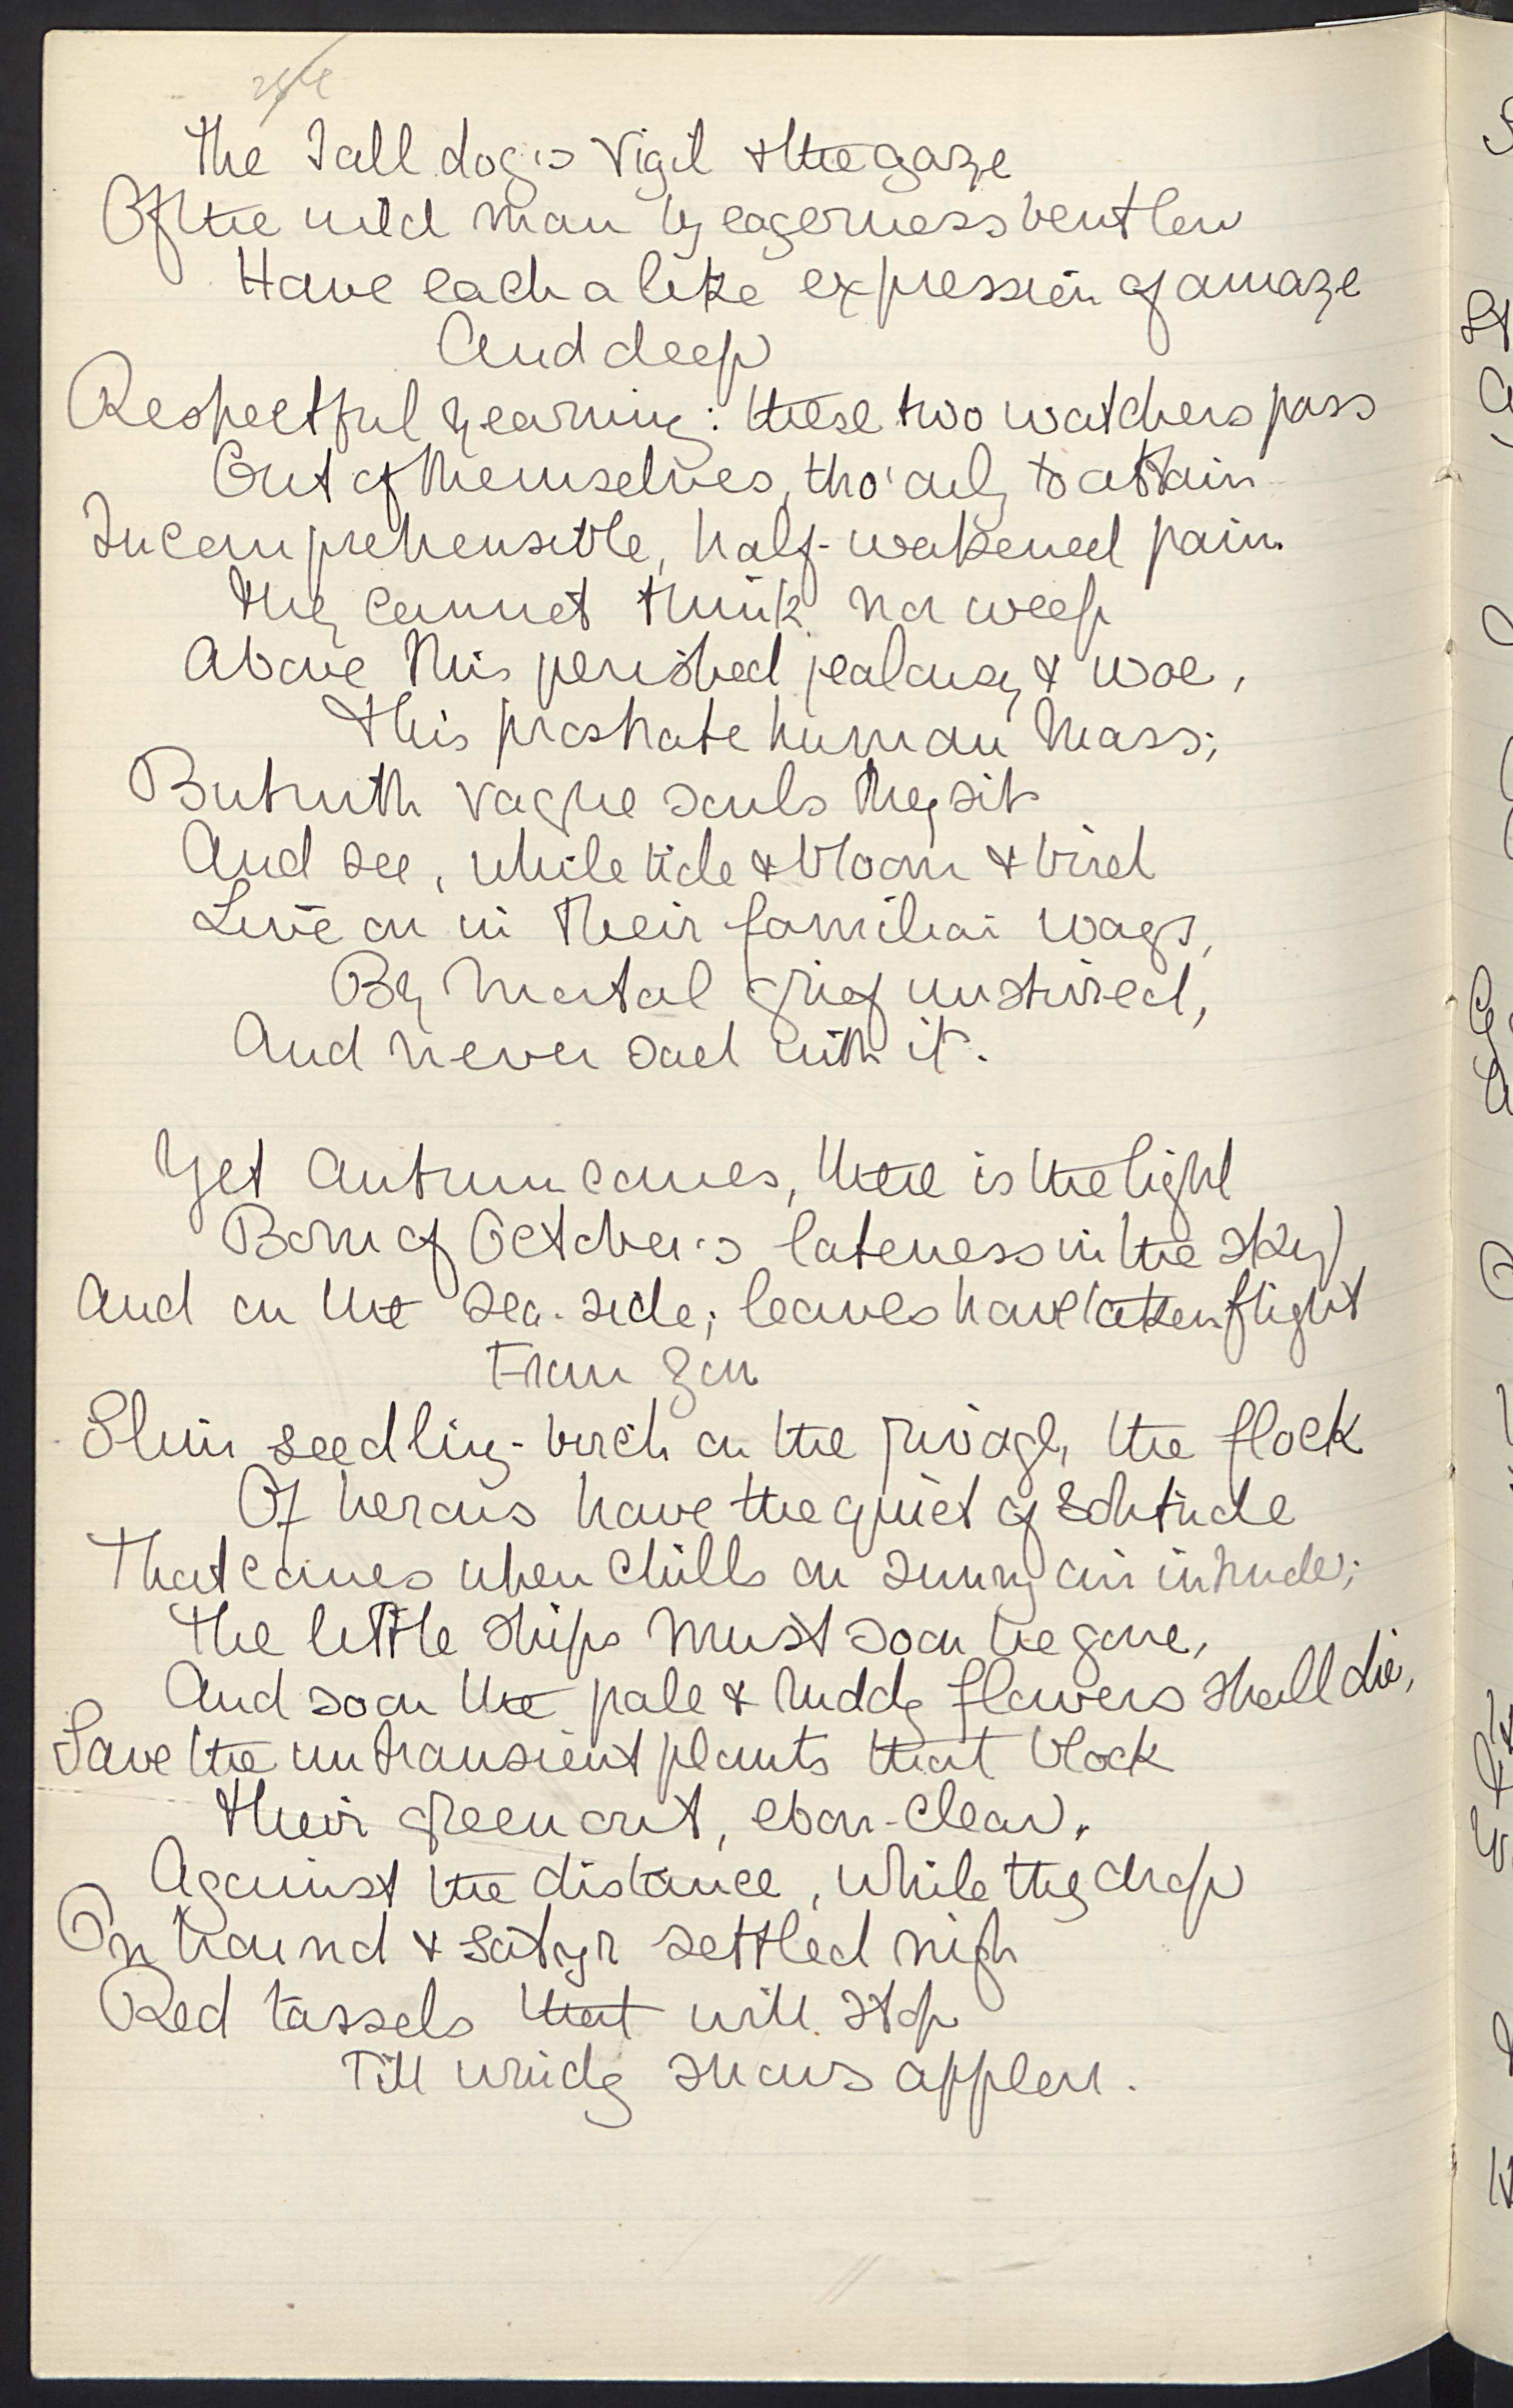 The Tall dog's vigil & the gaze
Of the wild man by eagerness bent low
Have each a like expression of amaze
And deep
Respectful yearning: these two watchers pass
Out of themselves, tho' only to attain
Incomprehensible, half-wakened pain.
They cannot think nor weep
Above this perished jealousy & woe,
This prostrate human mass;
But with vague souls they sit
And see, while tide & bloom & bird
Live on in their familiar ways,
By mortal grief unstirred,
And never sad with it.
Yet Autumn comes, there is the light
Born of October's lateness in the sky
And on the sea-side; leaves have taken flight
From yon
Slim seedling-birch on the rivage, the flock
Of herons have the quiet of solitude
That comes when chills on sunny air intrude;
The little ships must soon be gone,
And soon the pale & ruddy flowers shall die,
Save the untransient plants that block
Their green out, ebon-clear,
Against the distance, while they drop
On hound & satyr settled nigh
Red tassels that will stop
Till windy snows appear.